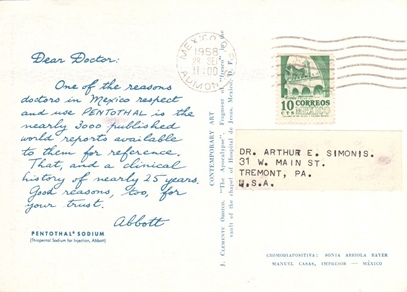 Dear Doctor:
One of the reasons
doctors in Mexico respect
and use PENTOTHAL is the
nearly 3000 published
world reports available
to them for reference.
That, and a clinical
history of nearly 25 years.
Good reasons, too, for
your trust.
Abbott
PENTOTHAL® SODIUM
(Thiopental Sodium for Injection, Abbott)
CONTEMPORARY ART
J. Clemente Orozco. "The Apocalypse". Fragment of
vault of the chapel of Hospital de Jesus, Mexico, D. F.
MEXICO
1958
11-00
10 CORREOS
MEXICO
DR. ARTHUR E. SIMONIS.
31 W. MAIN ST.
TREMONT, PA.
U.S.A.
CHIMODIAPOSITIVA: SONIA ARRIOLA BAYER
MANUEL CASAS, IMPRESOR — MÉXICO